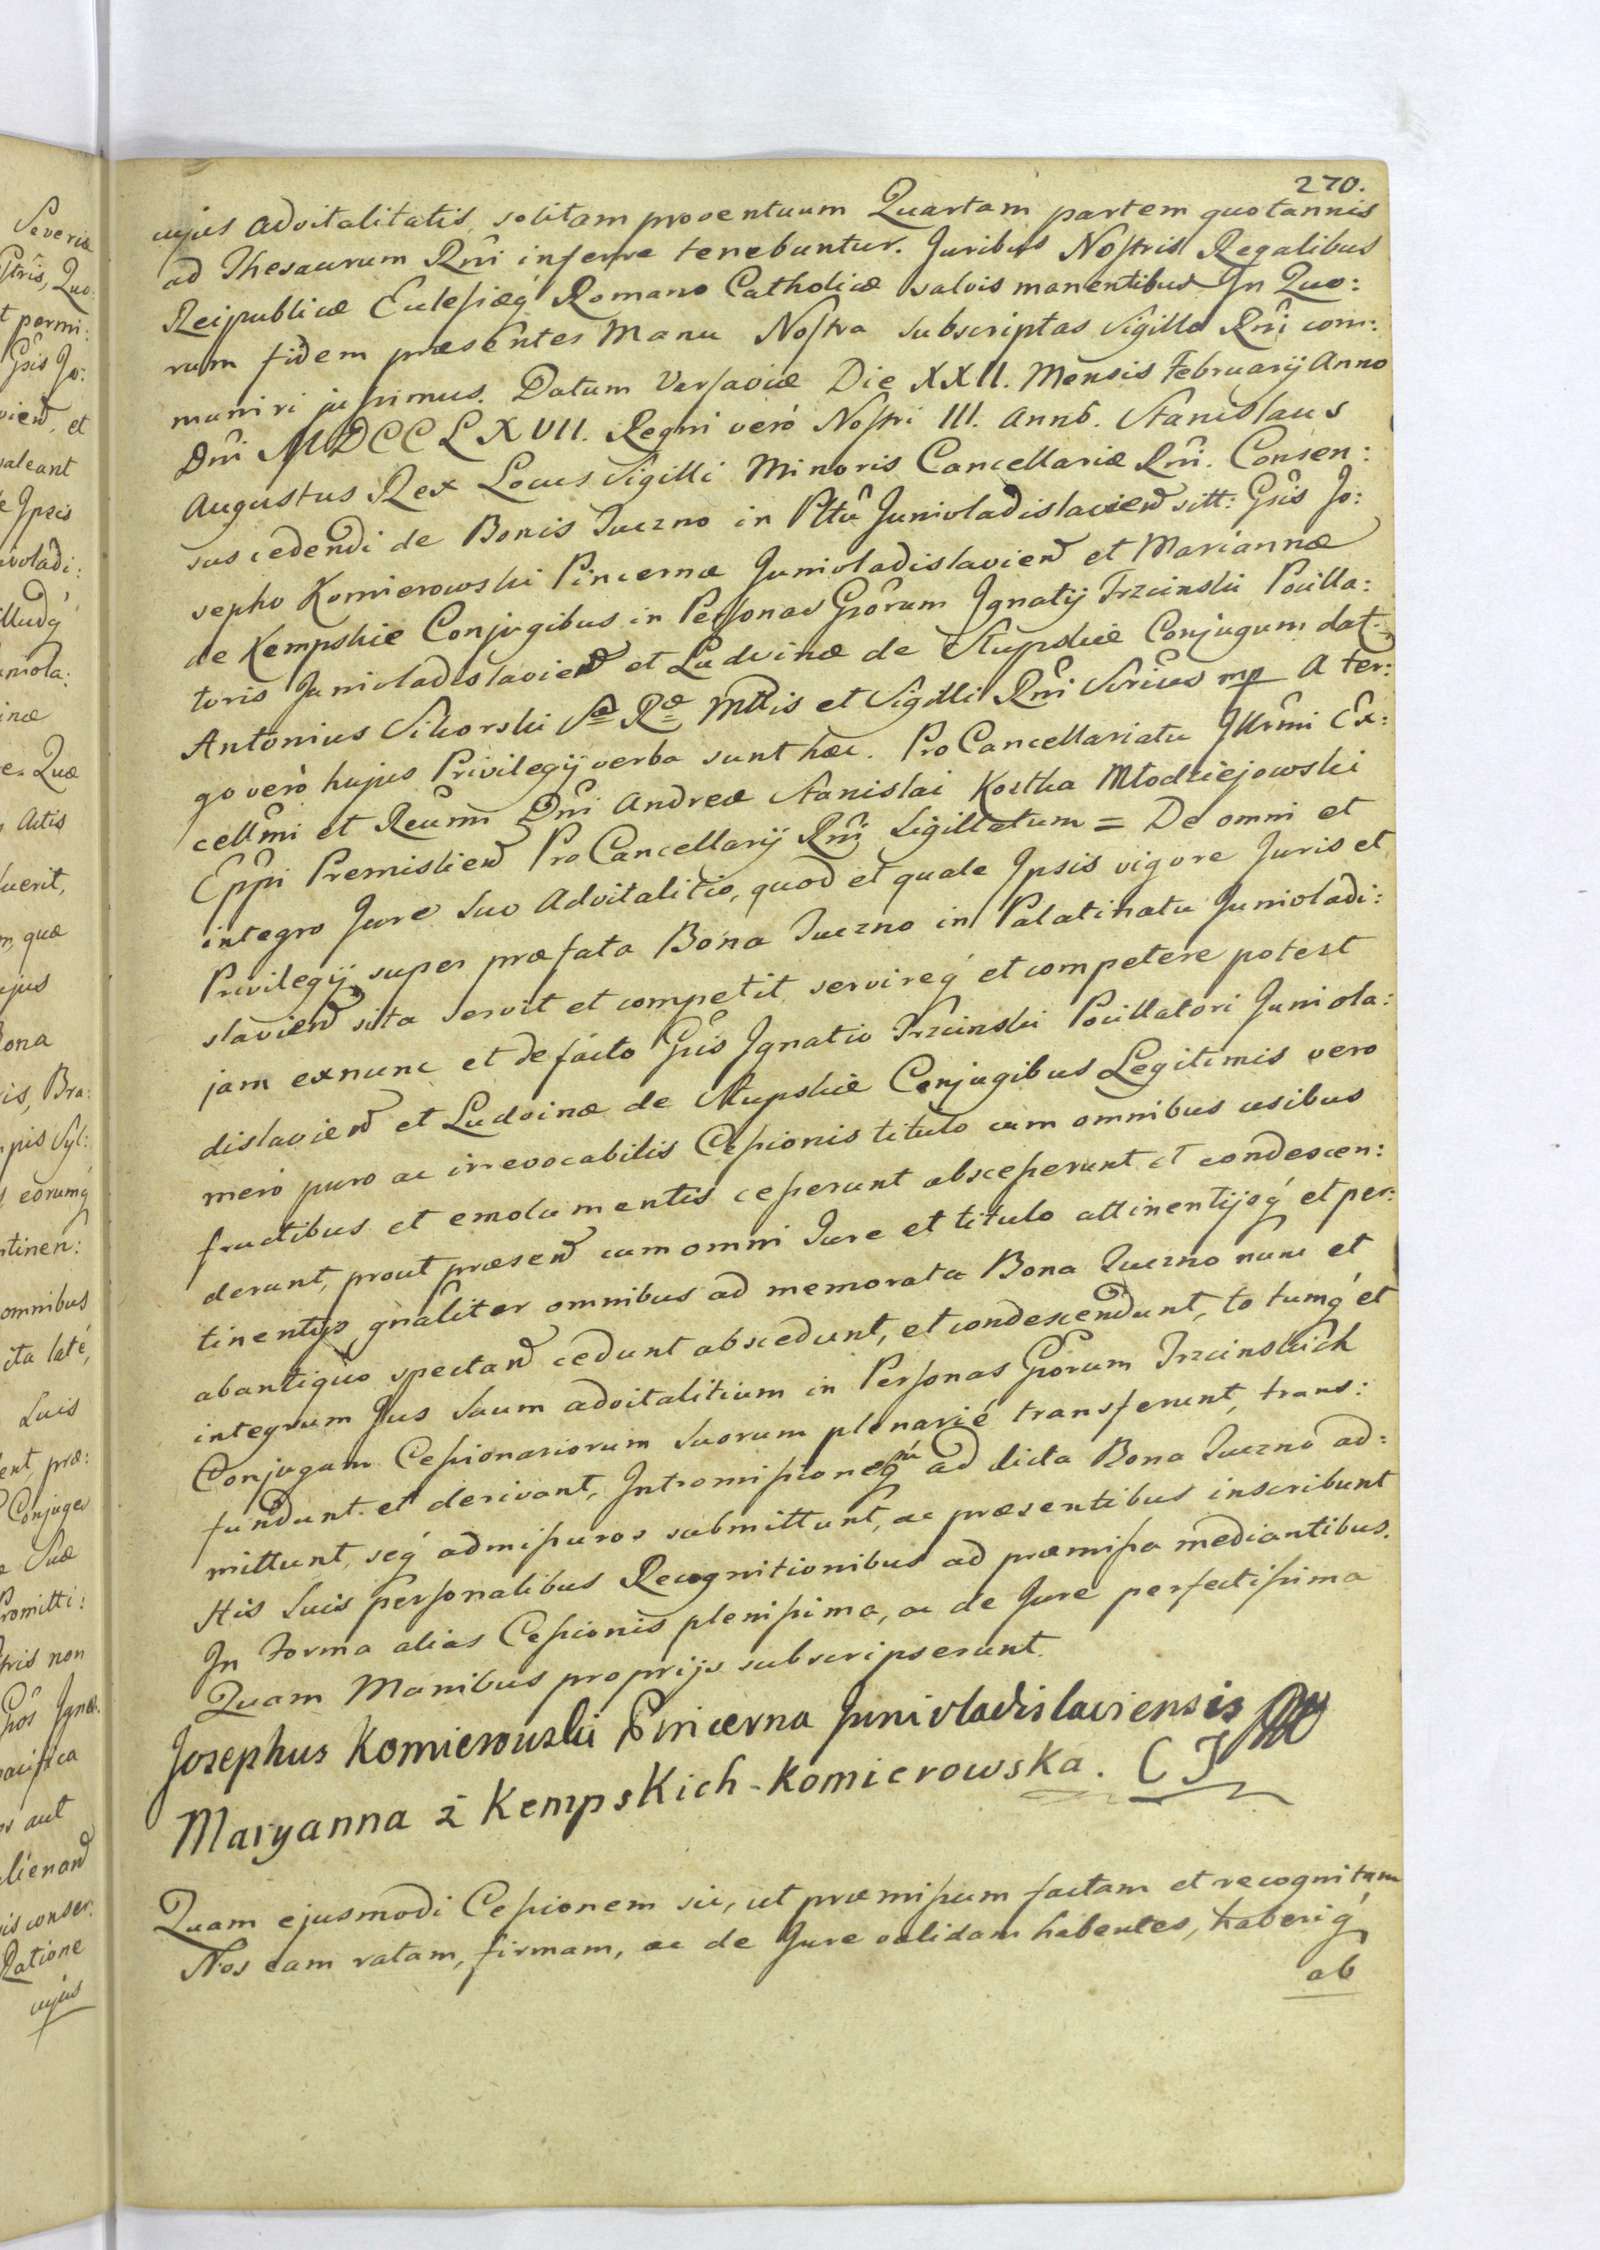 270.
cujus advitalitatis, solitam proventuum Quartam partem quotannis
ad Thesaurum Rñi inferre tenebuntur. Juribus Nostris Regalibus
Reipublicæ Eclesiæq́ Romano Catholicæ salvis manentibus In Quo:
rum fidem præsentes Manu Nostra subscriptas Sigillo Rñi com:
muniri jussimus. Datum Varsaviæ Die XXII. Mensis Februarij Anno
Dñi MDCCLXVII. Regni veró Nostri III. Anno. Stanislaus
Augustus Rex Locus Sigilli Minoris Cancellariæ Rñi. Consen:
sus cedendi de Bonis Tuczno in Plttu Junivladislavien sitt: Gsis Jo:
sepho Komierowski Pincernæ Junivladislavien et Mariannæ
de Kempskie Conjugibus in Personas Gsorum Ignatij Trzcinski Pocilla:
toris Junivladislavien et Ludvinæ de Słupskie Conjugum dat.
Antonius Sikorski Sæ Ræ Mttis et Sigilli Rñi Srius mp A ter:
go veró hujus Privilegij verba sunt hæc. Pro Cancellariatu Illrmi Ex:
cellmi et Reumi Dñi Andreæ Stanislai Kostka Młodziejowski
Eppi Premislien Pro Cancellarij Rñi Sigillatum = De omni et
integro Jure suo Advitalitio, quod et quale Ipsis vigore Juris et
Privilegij super præfata Bona Tuczno in Palatinatu Junivladi:
slavien sita servit et competit, servireq́ et competere potest
jam exnunc et defacto Gsis Ignatio Trzcinski Pocillatori Junivla:
dislavien et Ludvinæ de Słupskie Conjugibus Legitimis vero
meró puro ac irrevocabilis Cessionis titulo cum omnibus usibus
fructibus et emolumentis cesserunt abscesserunt et condescen:
derunt, prout præsen cum omni Jure et titulo attinentijsq́ et per:
tinentijs gñaliter omnibus ad memorata Bona Tuczno nunc et
abantiquo spectan cedunt abscedunt, et condescendunt, totumq́ et
integrum Jus suum advitalitium in Personas Gsorum Trzcinskich
Conjugum Cessionariorum suorum plenarié transferunt, trans:
fundunt et derivant, Intromissioneq́ ad dicta Bona Tuczno ad:
mittunt, seq́ admissuros submittunt, ac præsentibus inscribunt
His suis personalibus Recognitionibus ad præmissa mediantibus.
In Forma alias Cessionis plenissima, ac de Jure perfectissima
Quam Manibus proprijs subscripserunt.
Josephus Komierowski Pincerna Junivladislaviensis
Maryanna z Kempskich - Komierowska.
Quam ejusmodi Cessionem sic, ut præmissum factam et recognitam
Nos eam ratam, firmam, ac de Jure validam habentes, haberiq́
ab